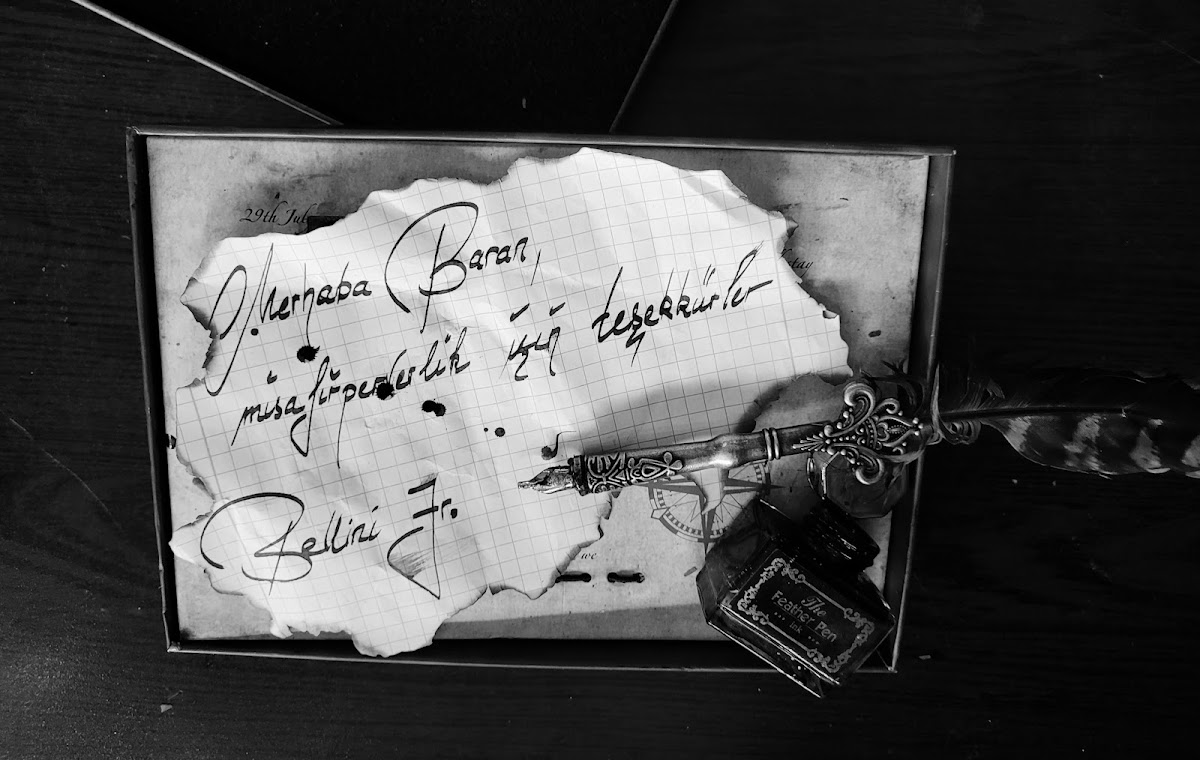 29th Jul
Merhaba Baran,
misafirperverlik için teşekkürler
Bellini Jr.
we
The
Feather Pen
Ink